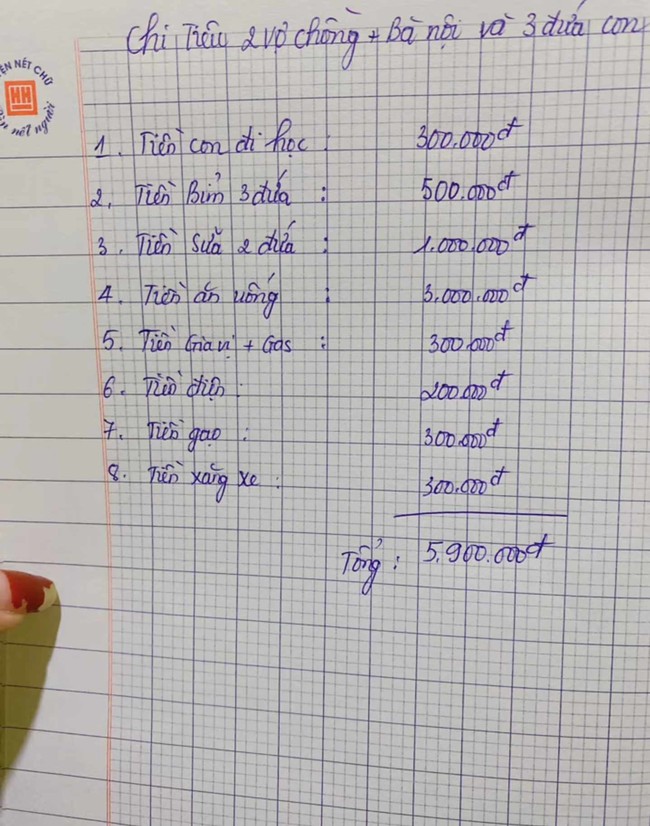 Chi Tiêu 2 vợ chồng + Bà nội và 3 đứa con
ÈN NẾT CHỮ
HH
nết người
1. Tiền con đi học : 300.000đ
2. Tiền Bỉm 3 đứa : 500.000đ
3. Tiền Sữa 2 đứa : 1.000.000đ
4. Tiền ăn uống : 3.000.000đ
5. Tiền Gia vị + Gas : 300.000đ
6. Tiền điện : 200.000đ
7. Tiền gạo : 300.000đ
8. Tiền xăng xe : 300.000đ
Tổng : 5.900.000đ